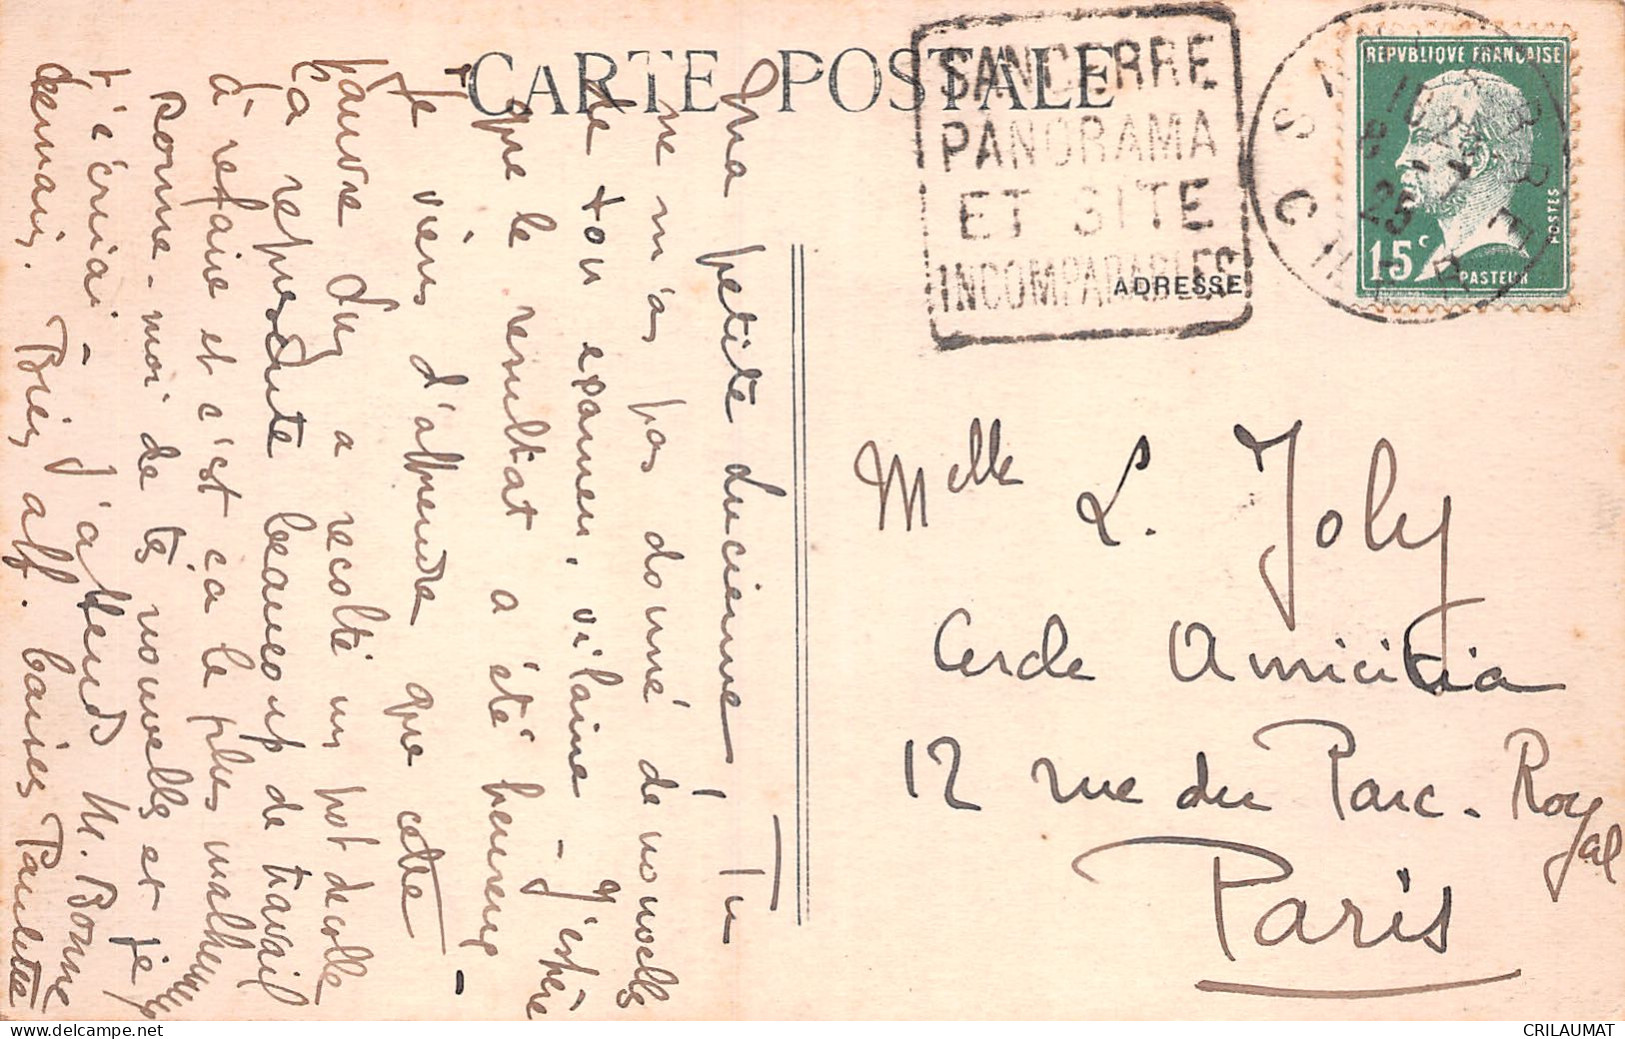 CARTE POSTALE
SANCERRE
PANORAMA
ET SITE
INCOMPARABLES
ADRESSE
REPVBLIQVE FRANCAISE
POSTES
15c
PASTEUR
Ma petite Lucienne, Tu
ne m'as pas donné de nouvelles
de ton examen, vilaine - J'espère
que le resultat a été heureux -
Je viens d'apprendre que cette
pauvre Lily a récolté un pot de colle
ça represente beaucoup de travail
à refaire et c'est ça le plus malheureux
Donne-moi de tes nouvelles et je
t'écrirai - J'attends M. Bonne
demain. Bien aff. baisers Paulette
Melle L. Joly
Cercle Amicitia
12 rue du Parc-Royal
Paris
CRILAUMAT